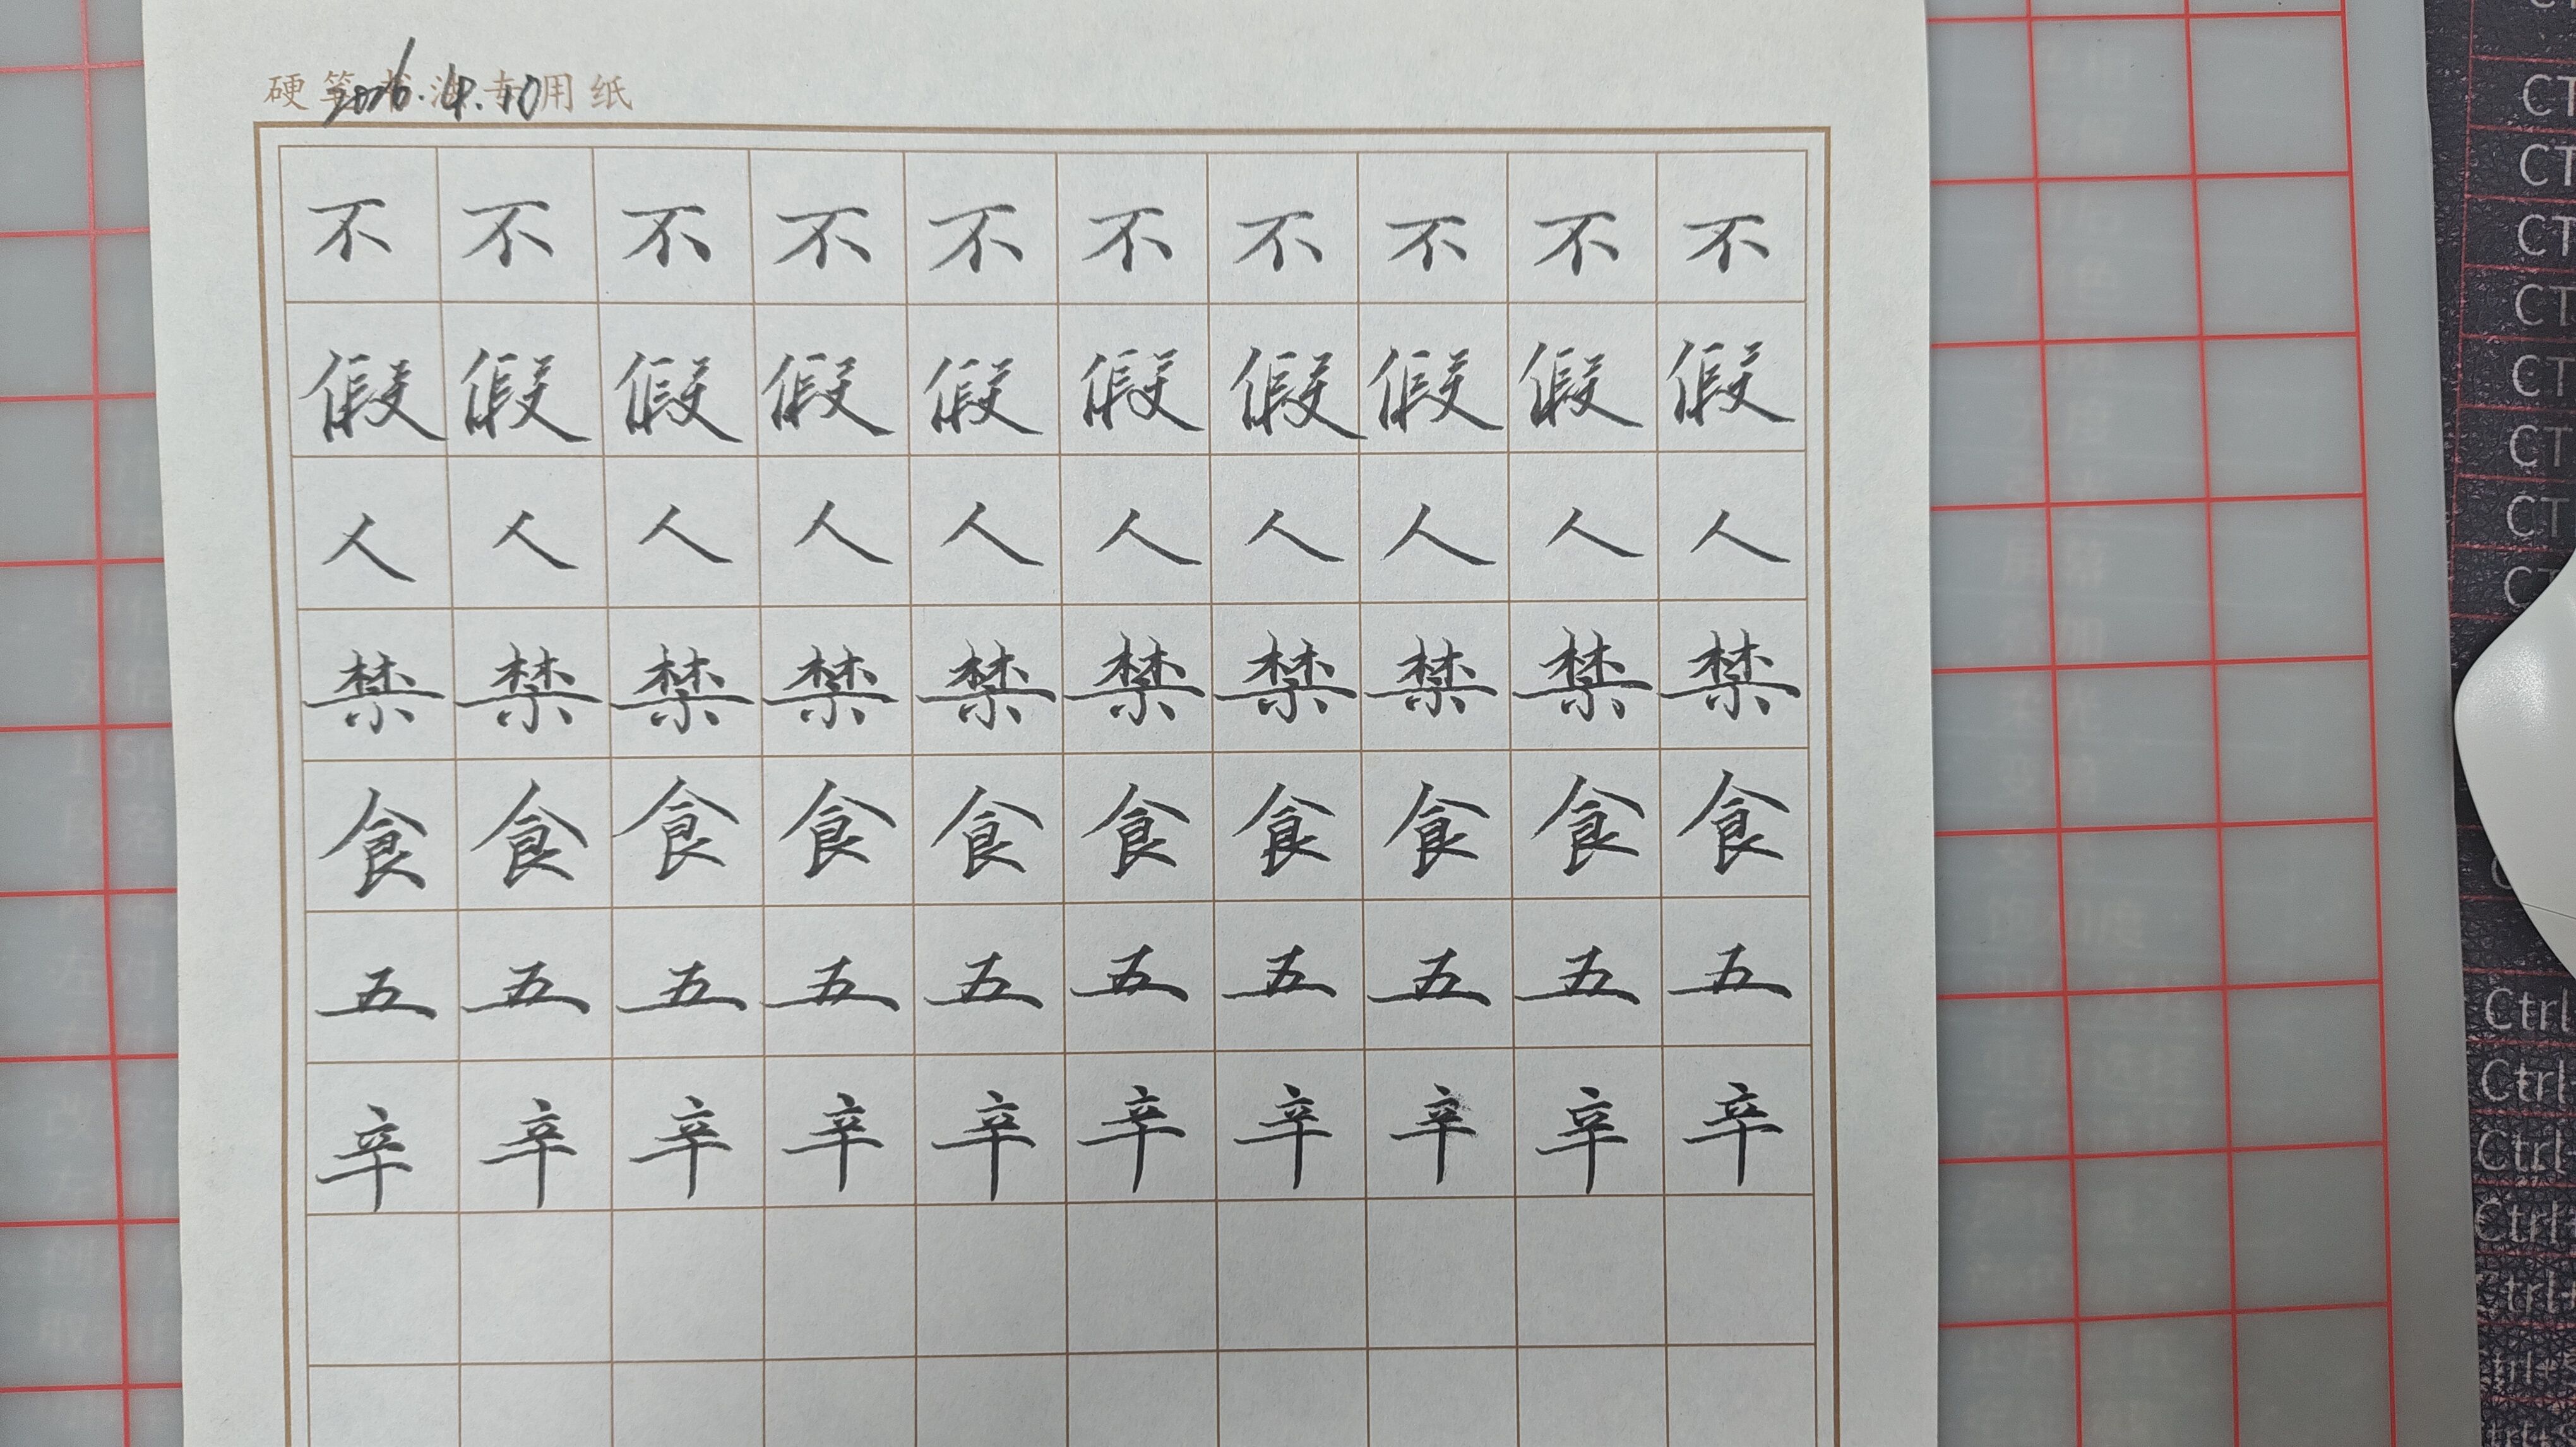 硬笔书法专用纸
2026.4.10
不不不不不不不不不不
假假假假假假假假假假
人人人人人人人人人人
禁禁禁禁禁禁禁禁禁禁
食食食食食食食食食食
五五五五五五五五五五
辛辛辛辛辛辛辛辛辛辛
CT
CT
CT
CT
CT
CT
CT
Ctrl
Ctrl
Ctrl
Ctrl